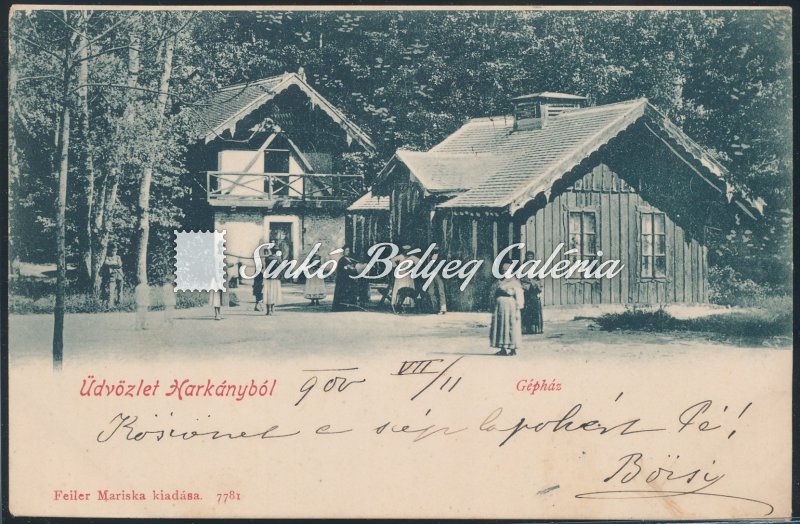 Sinkó Bélyeg Galéria
Üdvözlet Harkányból 900 VII/11 Gépház
Köszönet a szép lapokért
Feiler Mariska kiadása. 7781